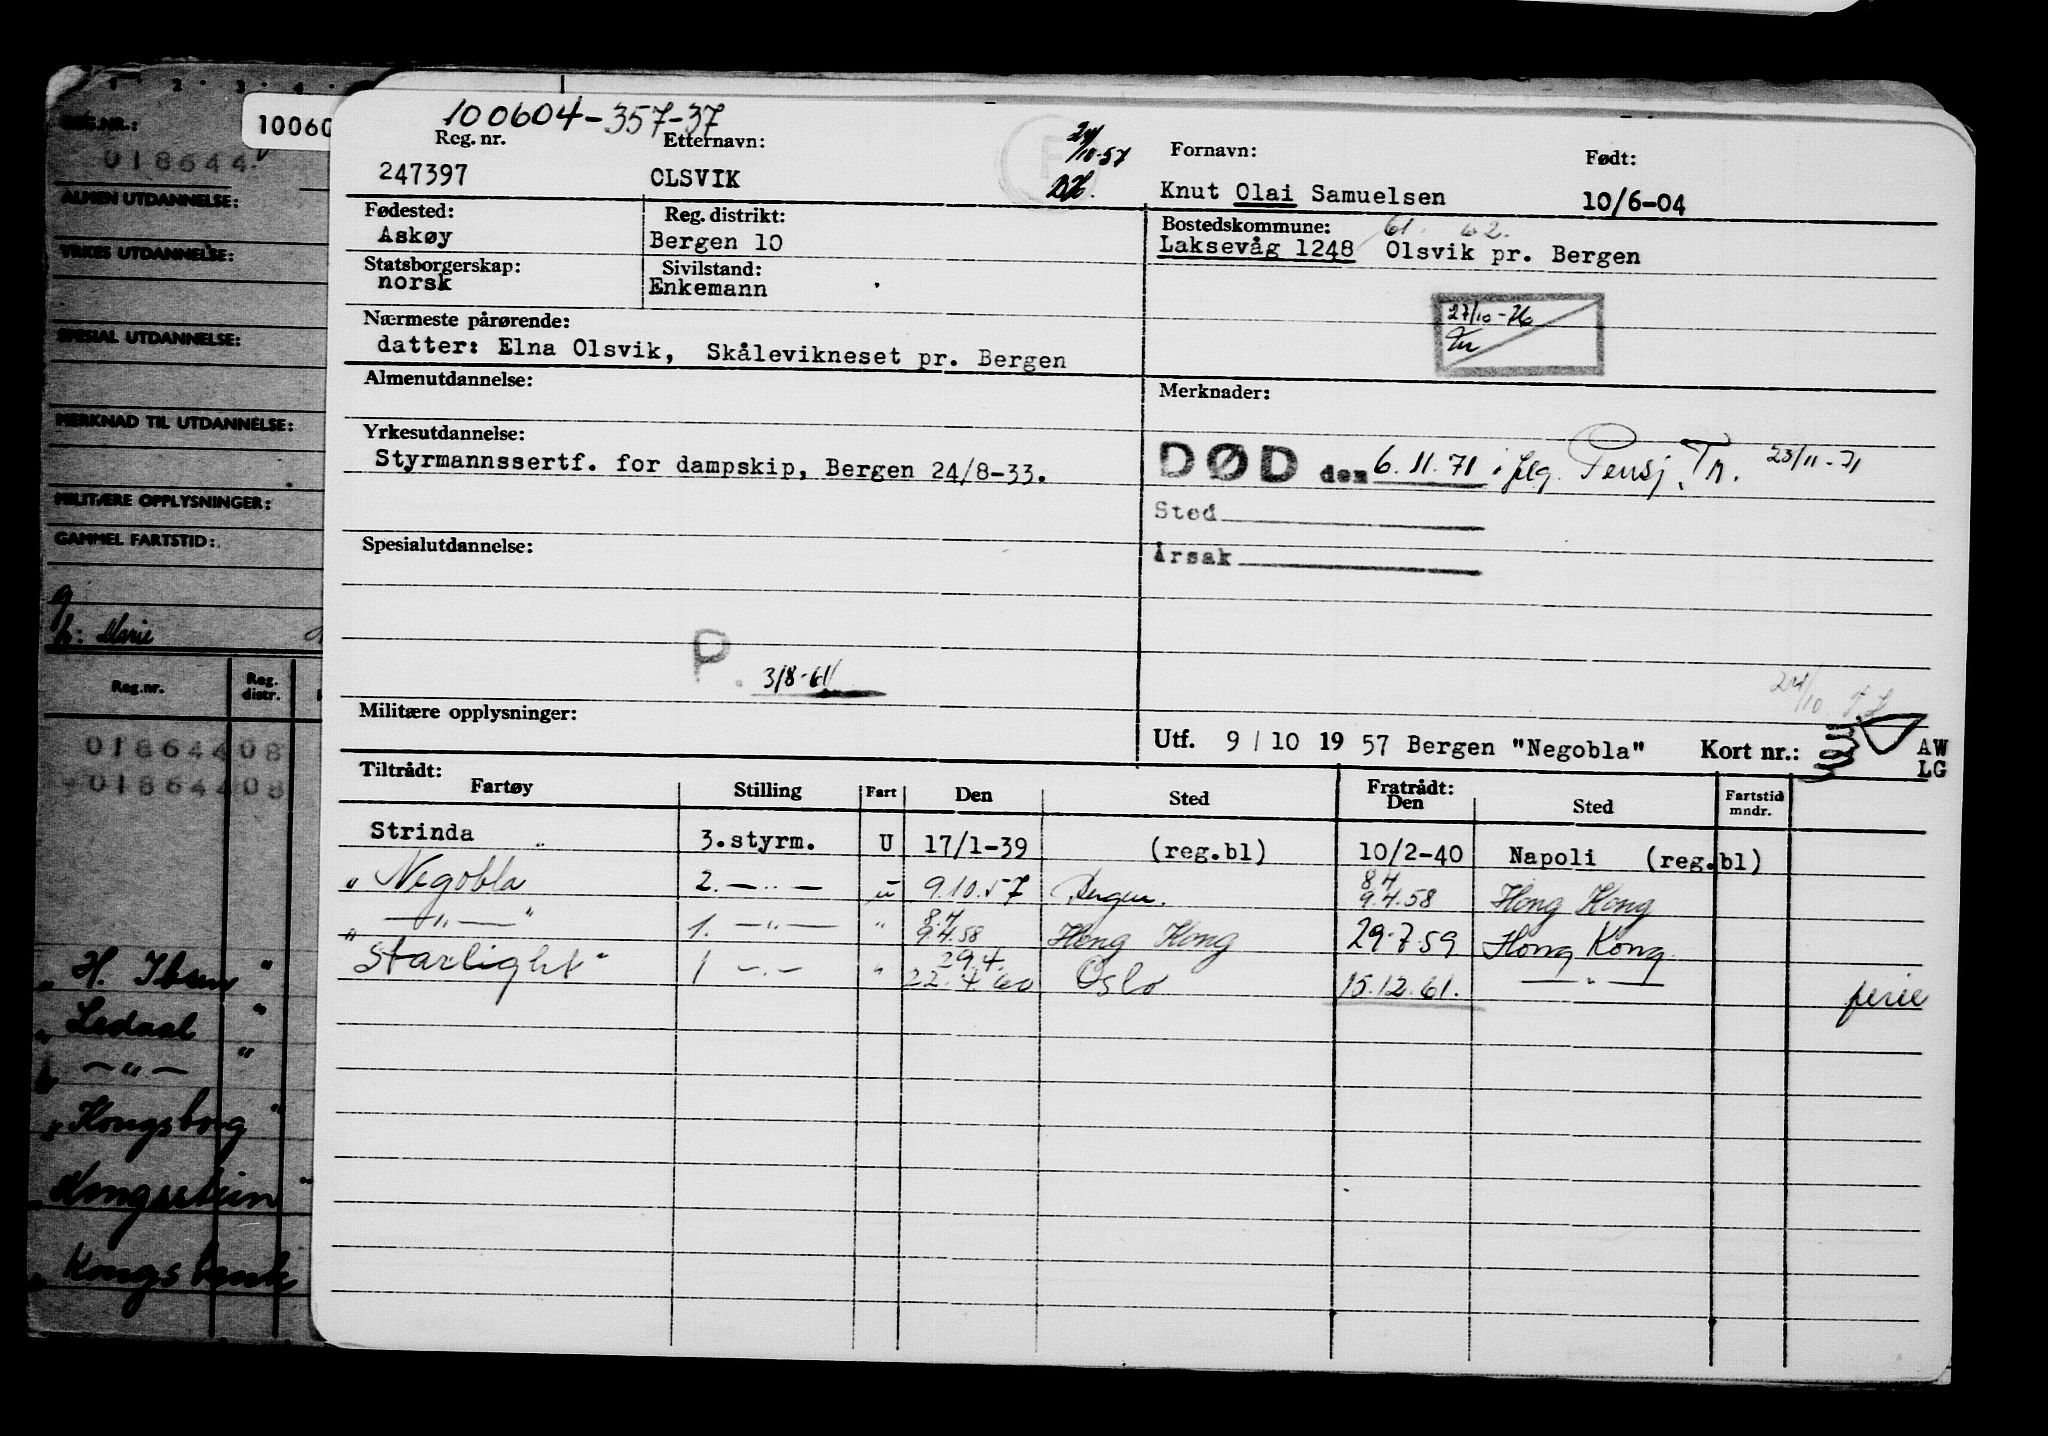 100604-357-37
Reg. nr. Etternavn: 24/10-57 Fornavn: Født:
247397 OLSVIK Knut Olai Samuelsen 10/6-04
Fødested: Reg. distrikt: Bostedskommune: 61. 62.
Askøy Bergen 10 Laksevåg 1248 Olsvik pr. Bergen
Statsborgerskap: Sivilstand:
norsk Enkemann
27/10-76
Nærmeste pårørende:
datter: Elna Olsvik, Skålevikneset pr. Bergen
Almenutdannelse: Merknader:
Yrkesutdannelse:
Styrmannssertf. for dampskip, Bergen 24/8-33.
DØD den 6.11.71 i flg. Pensj. Tr. 23/11-71
Sted
Årsak
Spesialutdannelse:
P. 3/8-61
24/10
Militære opplysninger:
Utf. 9/10 1957 Bergen "Negobla" Kort nr.: AW
LG
Tiltrådt: Fratrådt:
Fartøy Stilling Fart Den Sted Den Sted Fartstid mndr.
Strinda " 3.styrm. U 17/1-39 (reg.bl) 10/2-40 Napoli (reg.bl)
" Negobla 2. —"— u 9.10.57 Bergen. 8.4 9.4.58 Hong Kong
—"— " 1. —"— " 8.4 9.4.58 Hong Kong 29.7.59 Hong Kong
" Starlight " 1 —"— " 29.4. 22.4.60 Oslo 15.12.61. —"— ferie
1 2 3 4
REG.NR.: 10060
018644
ALMEN UTDANNELSE:
YRKES UTDANNELSE:
SPESIAL UTDANNELSE:
MERKNAD TIL UTDANNELSE:
MILITÆRE OPPLYSNINGER:
GAMMEL FARTSTID:
g
h: Marie
Reg.nr. Reg. distr.
01864408
01864408
" H. Ibsen "
" Ledaal "
—"— "
" Kongsborg "
" Kongsstein "
" Kongsbank